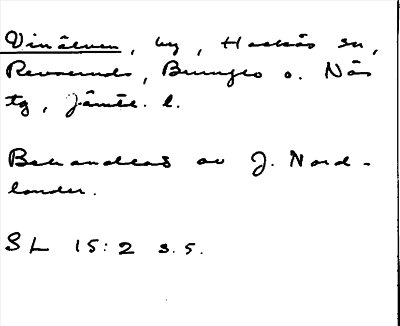 Vinälven, by, Hackås sn,
Revsunds, Brunflo o. Näs
tg, Jämtl. l.
Behandlas av J. Nord-
lander.
SL 15:2 s.5.